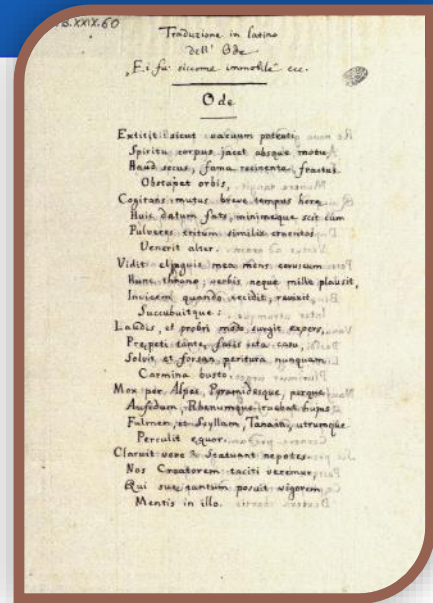 B.XXIX.60
Traduzione in latino
dell' Ode
„Ei fu: siccome immobile" ecc.
Ode
Extitit: sicut vacuum potenti
Spiritu corpus jacet absque motu
Haud secus, fama recinente, fractus
Obstupet orbis,
Cogitans mutus breve tempus hora
Huic datum fati, minimeque scit cum
Pulveres tritum similis cruentos
Venerit alter.
Vidit elinguis mea mens coruscum
Hunc throno; verbis neque mille plausit,
Invicem quando cecidit, revixit
Succubuitque:
Laudis, et probri modo surgit expers,
Præpeti tante, satis icta casu,
Solvit et forsan peritura nunquam
Carmina busto.
Mox per Alpes, Pyramidesque, perque
Aufidum, Rhenumque ruebat hujus
Fulmen, et Scyllam, Tanaim, utrumque
Perculit equor.
Claruit vere? Statuant nepotes.
Nos Creatorem taciti veremur,
Qui suæ tantum posuit vigorem
Mentis in illo.